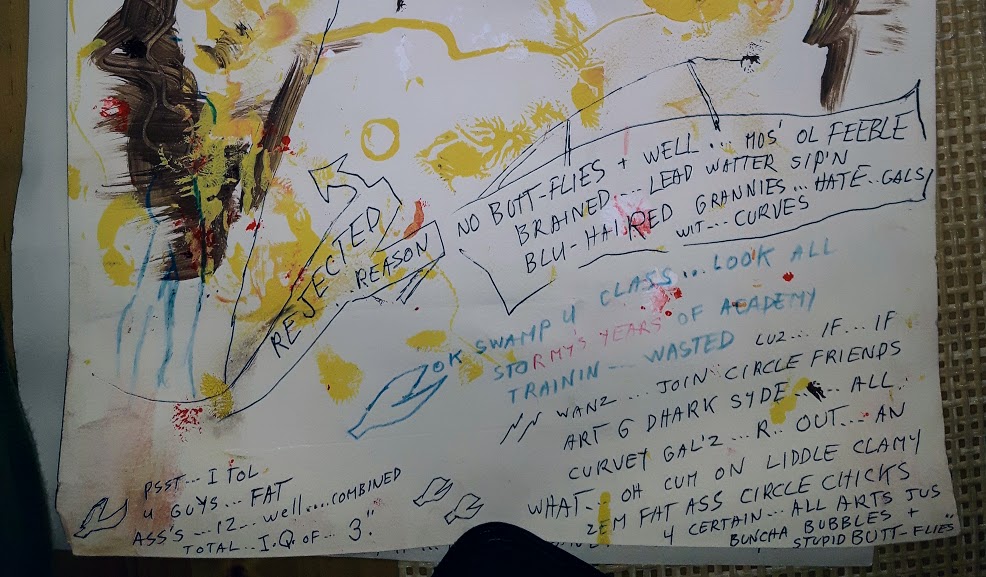 REJECTED
... REASON
NO BUTT-FLIES + WELL... MOS' OL FEEBLE
BRAINED.... LEAD WATTER SIP'N
BLU-HAIRED GRANNIES... HATE.. GALS
WIT--- CURVES
OK SWAMP 4 CLASS... LOOK ALL
STORMY'S YEARS OF ACADEMY
TRAININ--- WASTED LUZ... IF... IF
WANZ ... JOIN CIRCLE FRIENDS
ART G DHARK SYDE ...... ALL..
CURVEY GAL'Z ... R.. OUT... AN
WHAT... OH CUM ON LIDDLE CLAMY
ZEM FAT ASS CIRCLE CHICKS
4 CERTAIN... ALL ARTS JUS
BUNCHA BUBBLES +
STUPID BUTT-FLIES"
PSST... I TOL
U GUYS... FAT
ASS'S ... IZ.. WELL.....COMBINED
TOTAL.. I.Q. OF... 3."